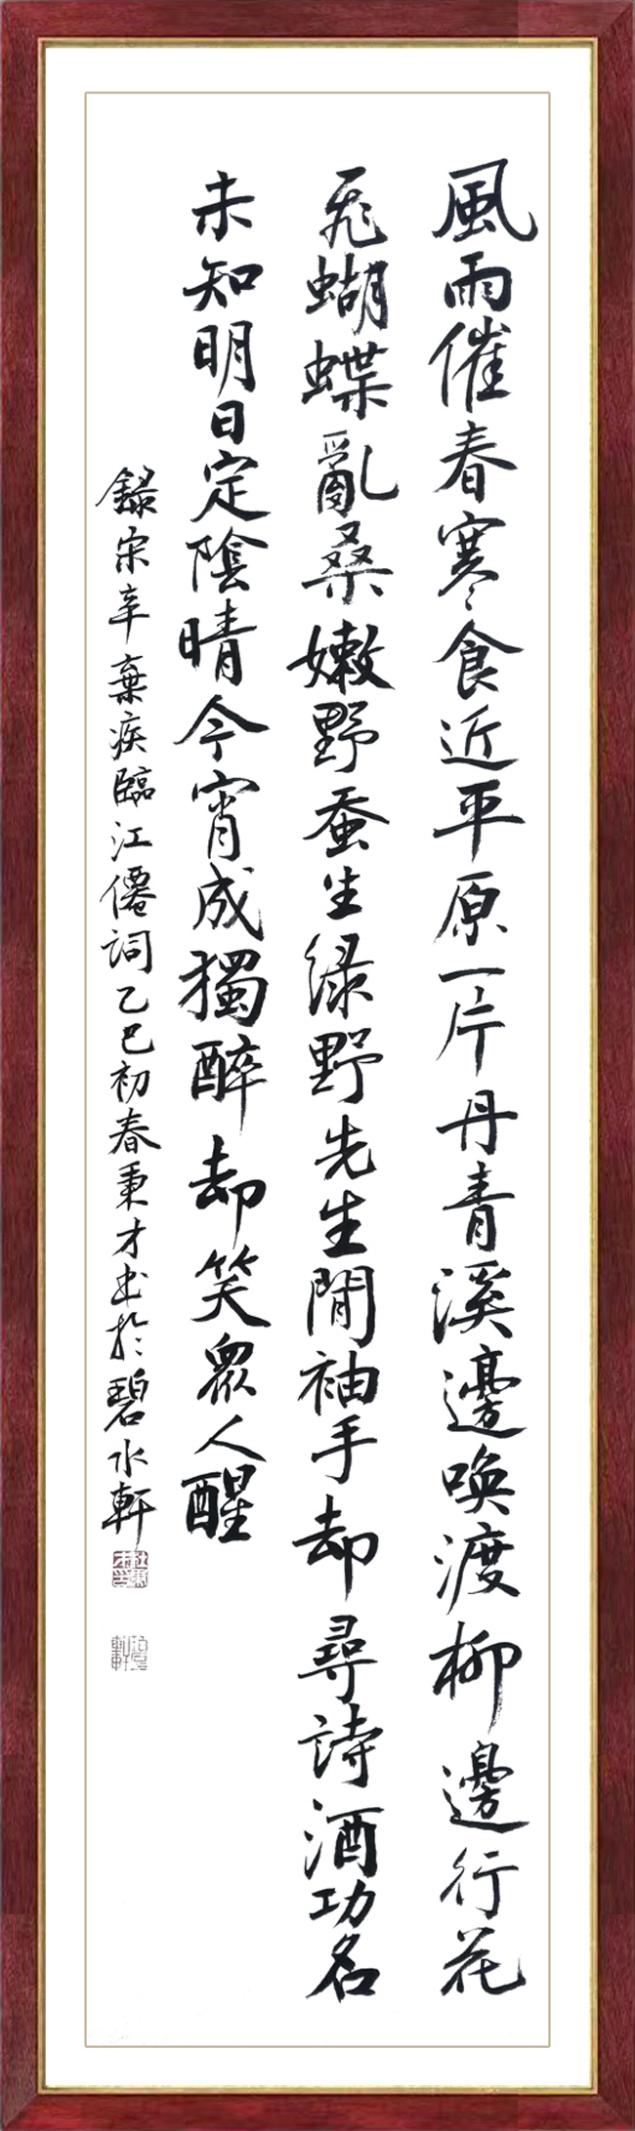 風雨催春寒食近平原一片丹青溪邊喚渡柳邊行花
飛蝴蝶亂桑嫩野蚕生綠野先生閒袖手却尋詩酒功名
未知明日定陰晴今宵成獨醉却笑眾人醒
錄宋辛棄疾臨江僊詞乙巳初春秉才書於碧水軒